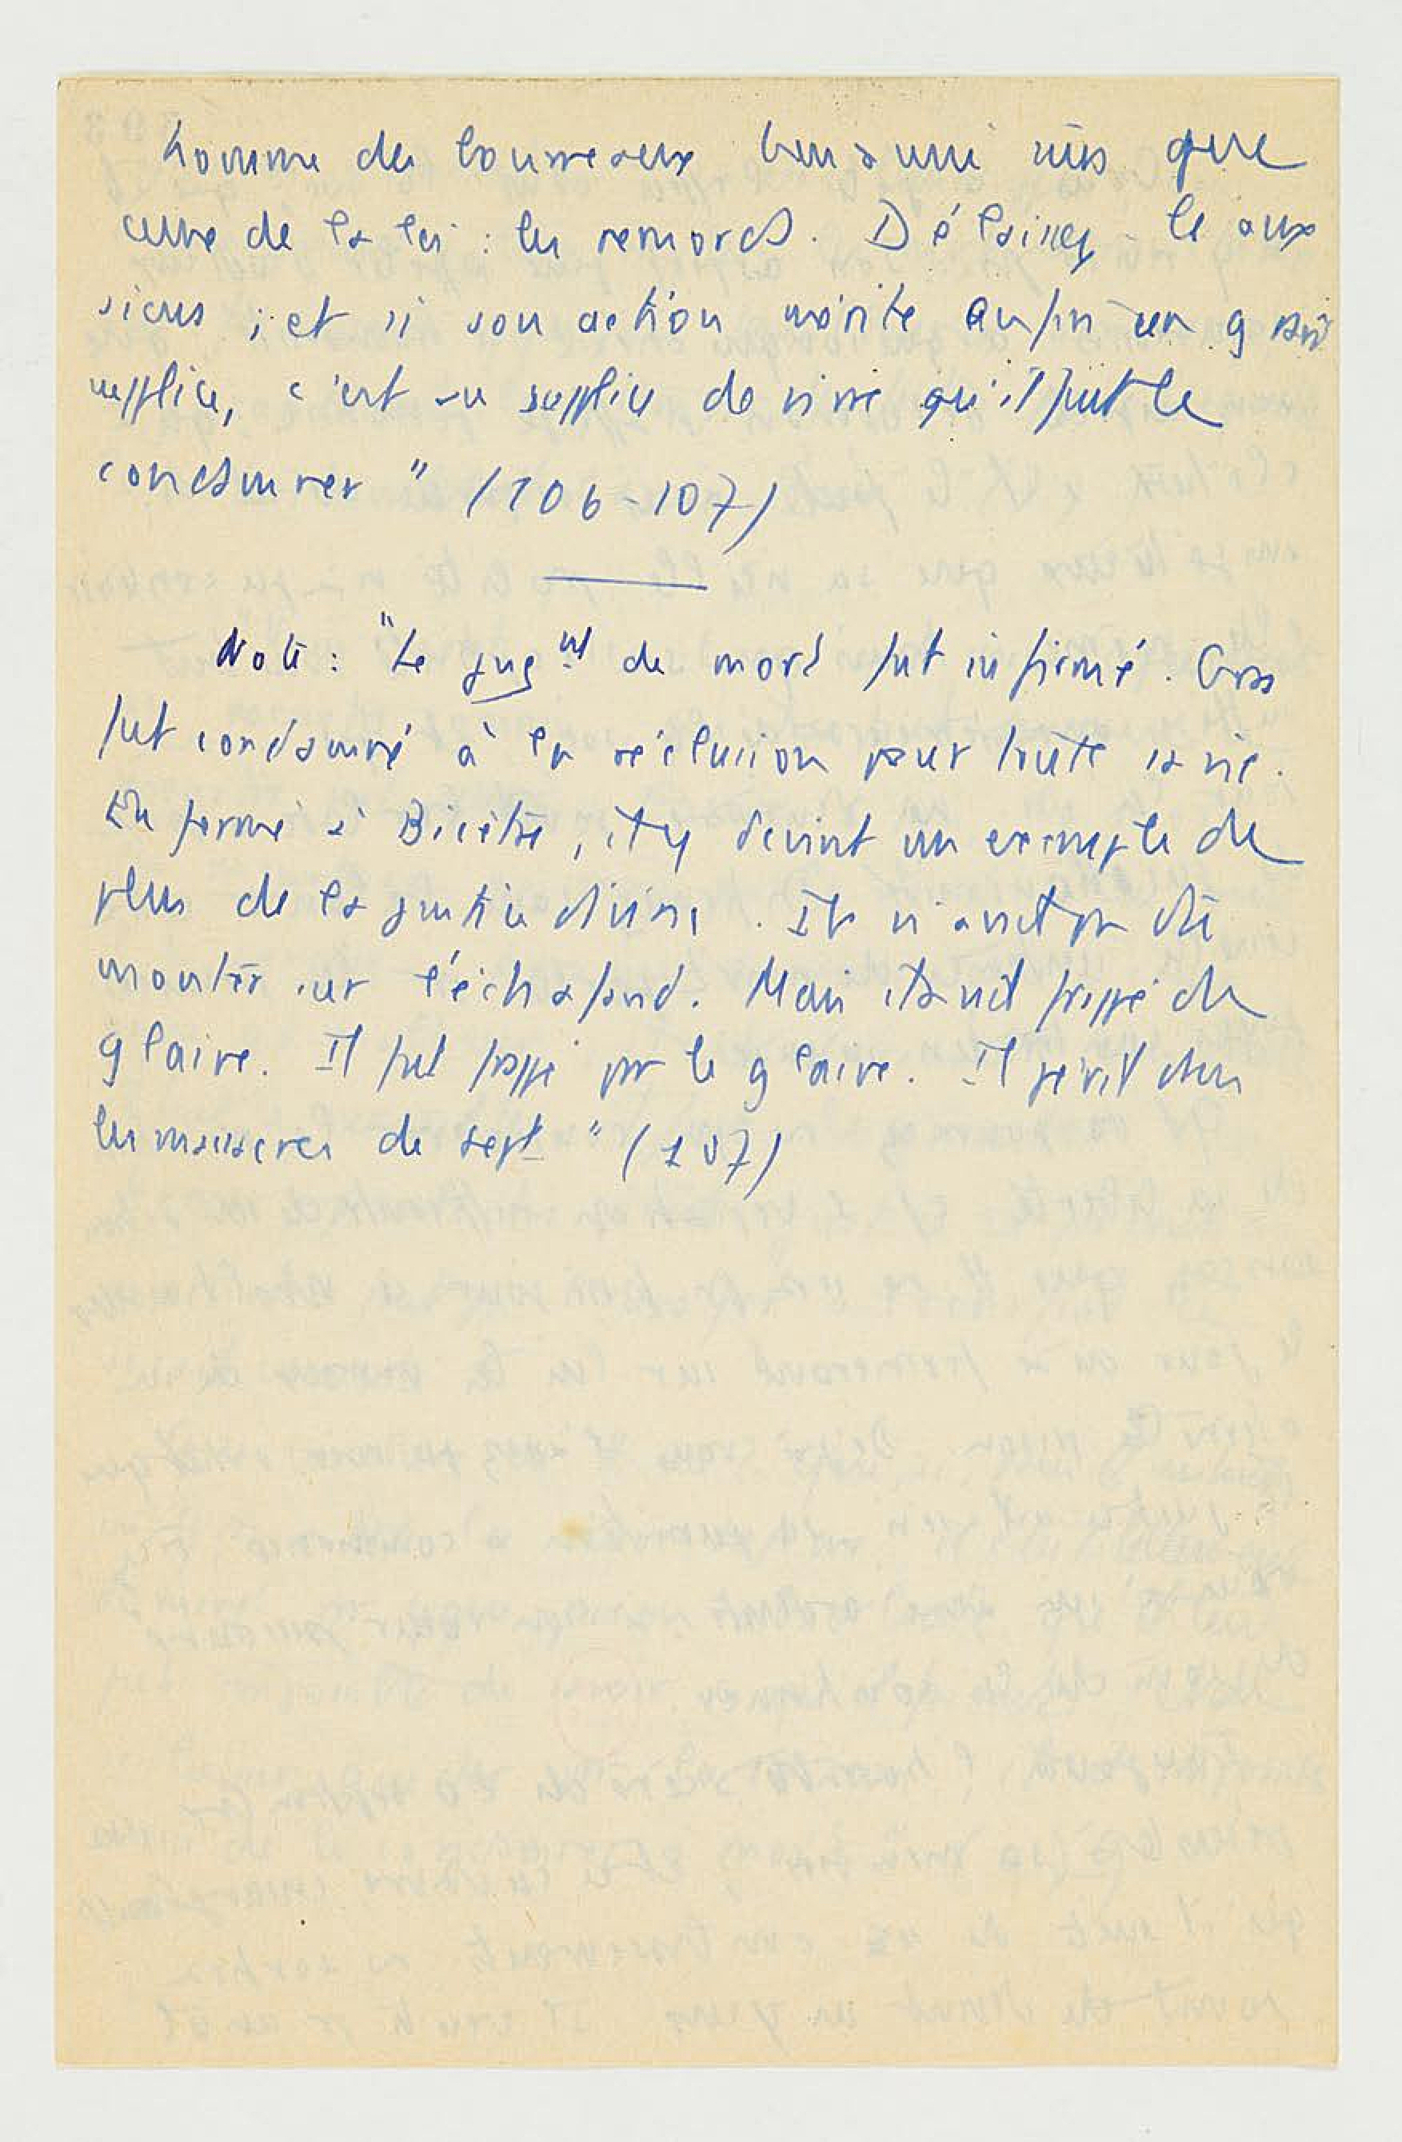 homme des bourreaux bien aussi sûrs que
ceux de la loi : les remords. Délaissez-le aux
siens ; et si son action mérite enfin un grand
supplice, c'est au supplice de vivre qu'il faut le
condamner " (106-107)
Note : "Le jugnt de mort fut infirmé. Gras
fut condamné à la réclusion pour toute sa vie.
Enfermé à Bicêtre, il y devint un exemple de
plus de la justice divine. Il n'avait pas dû
monter sur l'échafaud. Mais il avait frappé du
glaive. Il fut frappé par le glaive. Il périt dans
les massacres de sept " (107)